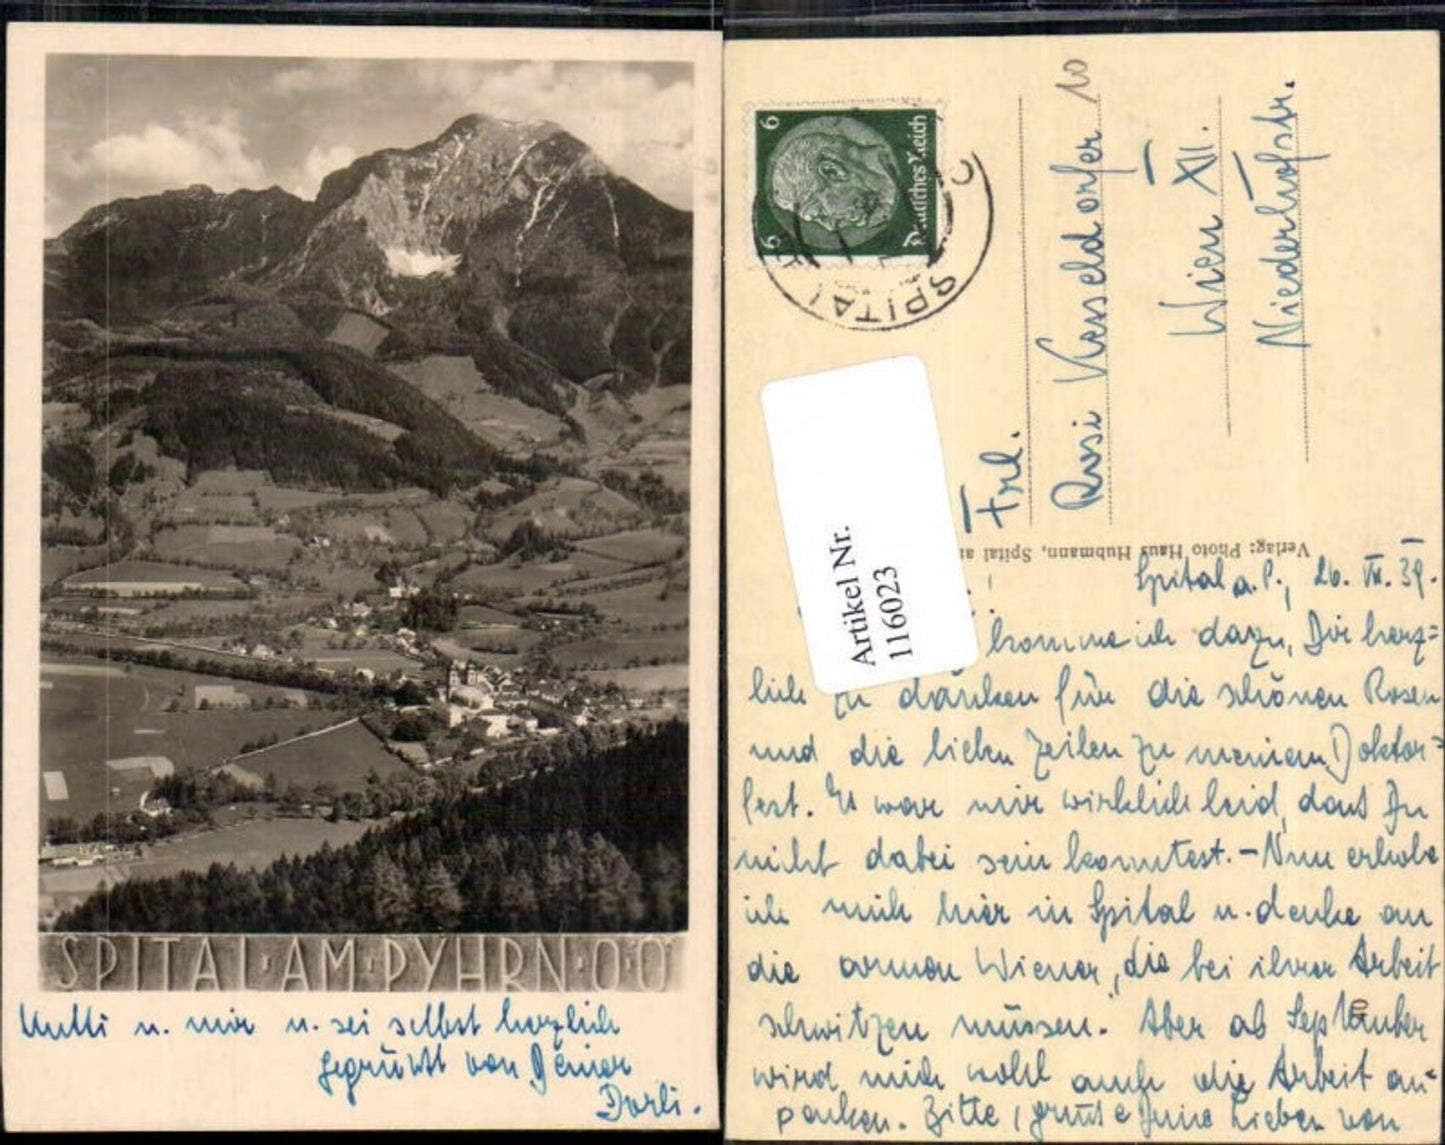 SPITAL·AM·PYHRN·O·Ö
Mutti u. mir u. sei selbst herzlich
gegrüßt von Deiner
Dorli.
6
6
Deutsches Reich
SPITAL
Artikel Nr.
116023
Frl.
Rosi Kesseldorfer
Wien XII.
Niederhofstr.
Verlag: Photo Haus Hubmann, Spital a
Spital a. P., 26. VII. 39.
komme ich dazu, Dir herz=
lich zu danken für die schönen Rosen
und die lieben Zeilen zu meinem Doktor=
fest. Es war mir wirklich leid, dass Du
nicht dabei sein konntest. – Nun erhole
ich mich hier in Spital u. denke an
die armen Wiener, die bei ihrer Arbeit
schwitzen müssen. Aber ab September
wird mich wohl auch die Arbeit an=
packen. Bitte, grüße Deine Lieben von